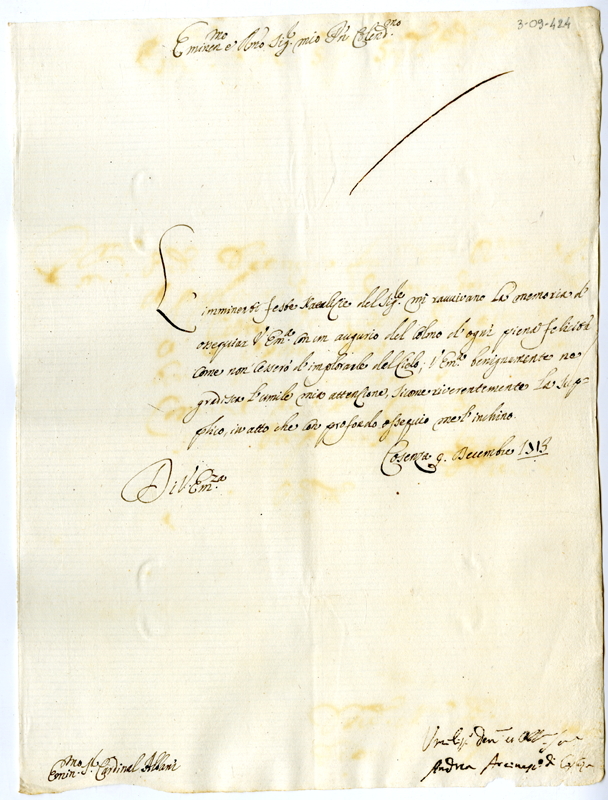 3-09-424
Eminen.mo e Rmo Sig.re mio Pn Colend.mo
L'imminenti feste Natalizie del Sig.re mi ravvivano la memoria d
ossequiar V. Em.za con un augurio del colmo d'ogni piena felicità
come non cesserò d'implorarle del Cielo; V. Em.za benignamente
gradisca l'umile mia attenzione, sicome riverentemente la sup-
plico, in atto che con profondo ossequio me l'inchino.
Cosenza 9. Decembre 1713
Di V. Em.za
Emin.mo Sr. Cardinal Albani
Andrea Arcivesc.o di Cosenza